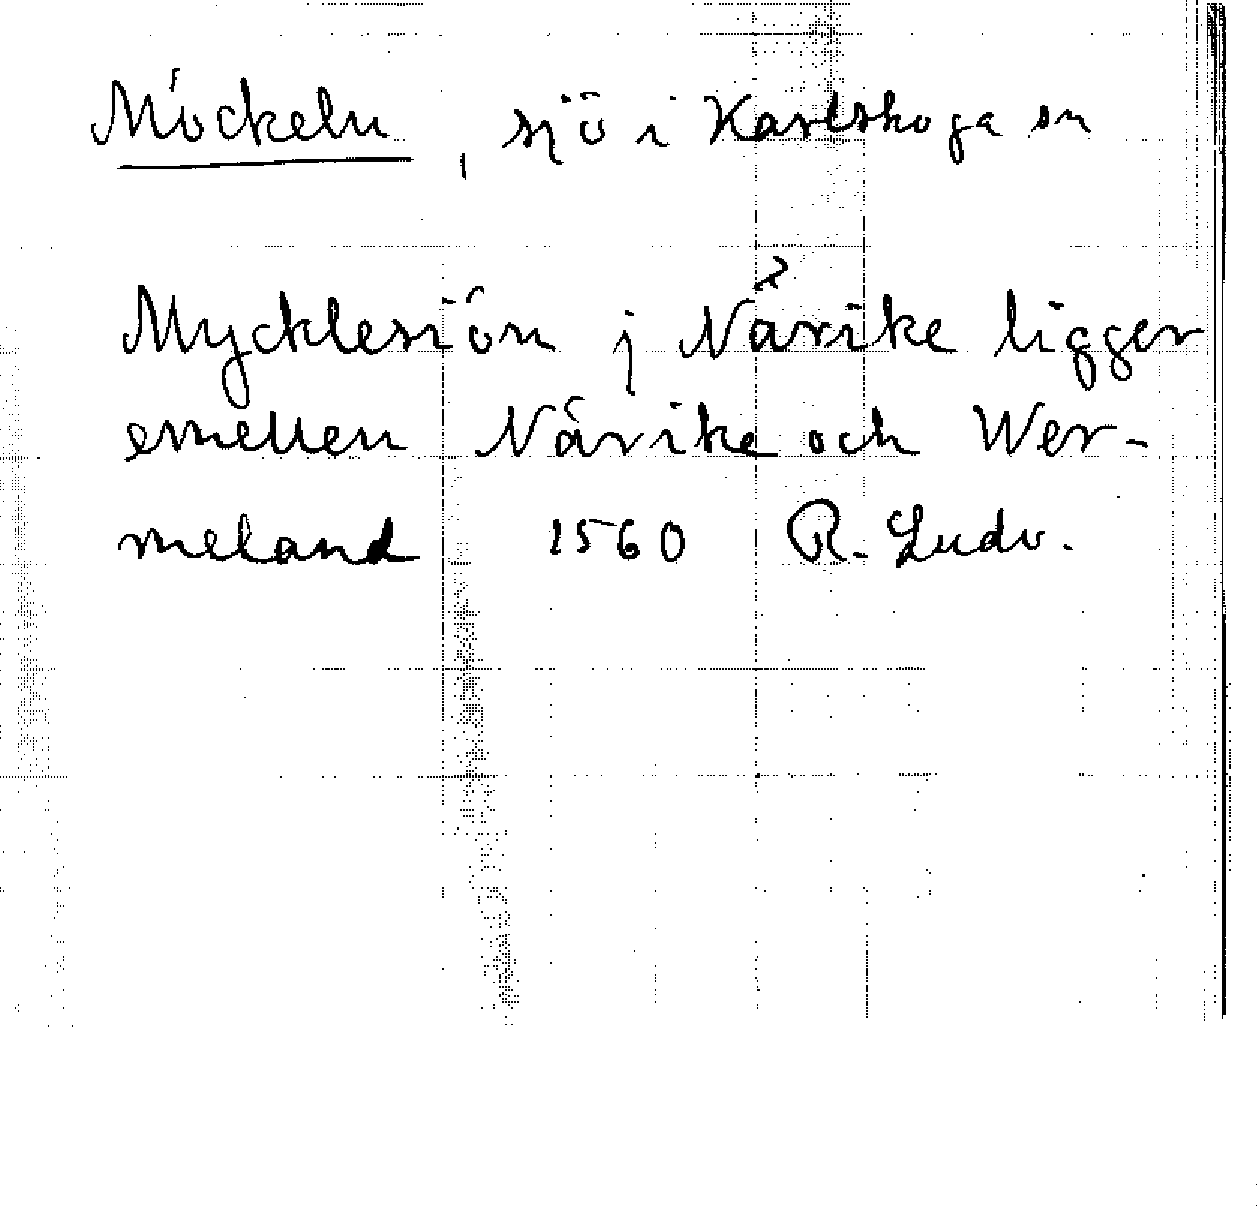 Möckeln, sjö i Karlskoga sn
Mycklesiön j Närike ligger
emellen Närike och Wer-
meland 1560 R. Ludv.